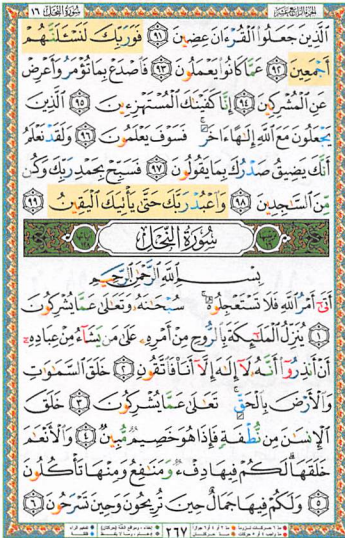 سورة النحل ١٦ الجزء الرابع عشر
الَّذِينَ جَعَلُوا الْقُرْءَانَ عِضِينَ ٩١ فَوَرَبِّكَ لَنَسْـَٔلَنَّهُمْ
أَجْمَعِينَ ٩٢ عَمَّا كَانُوا يَعْمَلُونَ ٩٣ فَاصْدَعْ بِمَا تُؤْمَرُ وَأَعْرِضْ
عَنِ الْمُشْرِكِينَ ٩٤ إِنَّا كَفَيْنَٰكَ الْمُسْتَهْزِءِينَ ٩٥ الَّذِينَ
يَجْعَلُونَ مَعَ اللَّهِ إِلَٰهًا ءَاخَرَ فَسَوْفَ يَعْلَمُونَ ٩٦ وَلَقَدْ نَعْلَمُ
أَنَّكَ يَضِيقُ صَدْرُكَ بِمَا يَقُولُونَ ٩٧ فَسَبِّحْ بِحَمْدِ رَبِّكَ وَكُن
مِّنَ السَّٰجِدِينَ ٩٨ وَاعْبُدْ رَبَّكَ حَتَّىٰ يَأْتِيَكَ الْيَقِينُ ٩٩
سُورَةُ النَّحْلِ
بِسْمِ اللَّهِ الرَّحْمَٰنِ الرَّحِيمِ
أَتَىٰٓ أَمْرُ اللَّهِ فَلَا تَسْتَعْجِلُوهُ سُبْحَٰنَهُۥ وَتَعَٰلَىٰ عَمَّا يُشْرِكُونَ
١ يُنَزِّلُ الْمَلَٰٓئِكَةَ بِالرُّوحِ مِنْ أَمْرِهِۦ عَلَىٰ مَن يَشَآءُ مِنْ عِبَادِهِۦٓ
أَنْ أَنذِرُوٓا أَنَّهُۥ لَآ إِلَٰهَ إِلَّآ أَنَا۠ فَاتَّقُونِ ٢ خَلَقَ السَّمَٰوَٰتِ
وَالْأَرْضَ بِالْحَقِّ تَعَٰلَىٰ عَمَّا يُشْرِكُونَ ٣ خَلَقَ
الْإِنسَٰنَ مِن نُّطْفَةٍ فَإِذَا هُوَ خَصِيمٌ مُّبِينٌ ٤ وَالْأَنْعَٰمَ
خَلَقَهَا لَكُمْ فِيهَا دِفْءٌ وَمَنَٰفِعُ وَمِنْهَا تَأْكُلُونَ
٥ وَلَكُمْ فِيهَا جَمَالٌ حِينَ تُرِيحُونَ وَحِينَ تَسْرَحُونَ ٦
٢٦٧